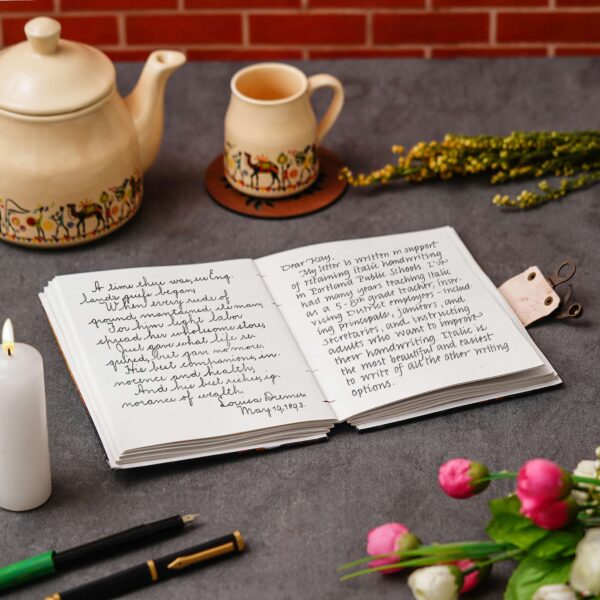 A time there was, ere Eng-
land's griefs began,
When every rude of
ground maintained its man;
For him light labor
spread her wholesome stores
Just gave what life re-
quired, but gave no more,
His best companions, in-
nocence and health;
And his best riches, ig-
norance of wealth.
Louisa
May 19, 1893.
Dear Kay,
My letter is written in support
of retaining italic handwriting
in Portland Public Schools. I've
had many years teaching italic
as a 5-8th grade teacher, inser-
vicing District employers - includ-
ing principals, janitors, and
secretaries, and instructing
adults who want to improve
their handwriting. Italic is
the most beautiful and easiest
to write of all the other writing
options.